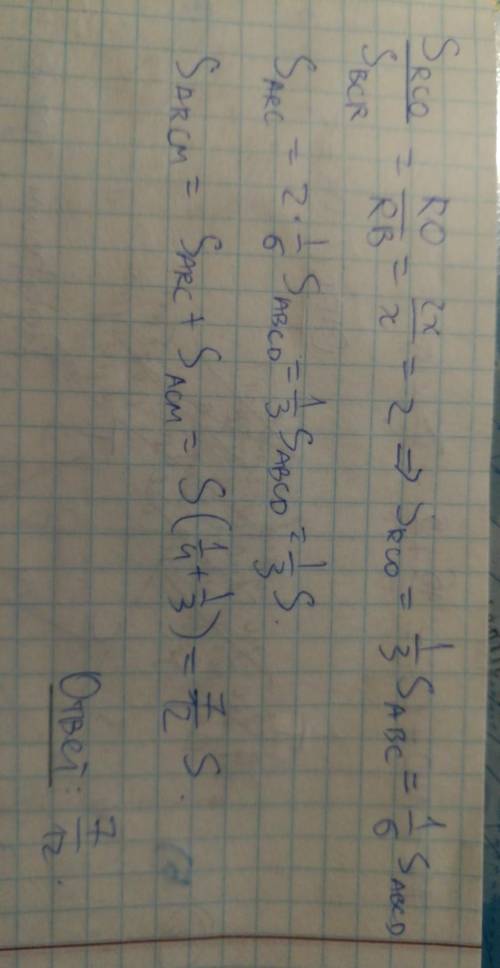 S_RCO / S_BCR = RO / RB = 2x / x = 2 ⇒ S_RCO = 1/3 S_ABC = 1/6 S_ABCD
S_ARC = 2 · 1/6 S_ABCD = 1/3 S_ABCD = 1/3 S.
S_ARCM = S_ARC + S_ACM = S(1/4 + 1/3) = 7/12 S.
Ответ: 7/12.